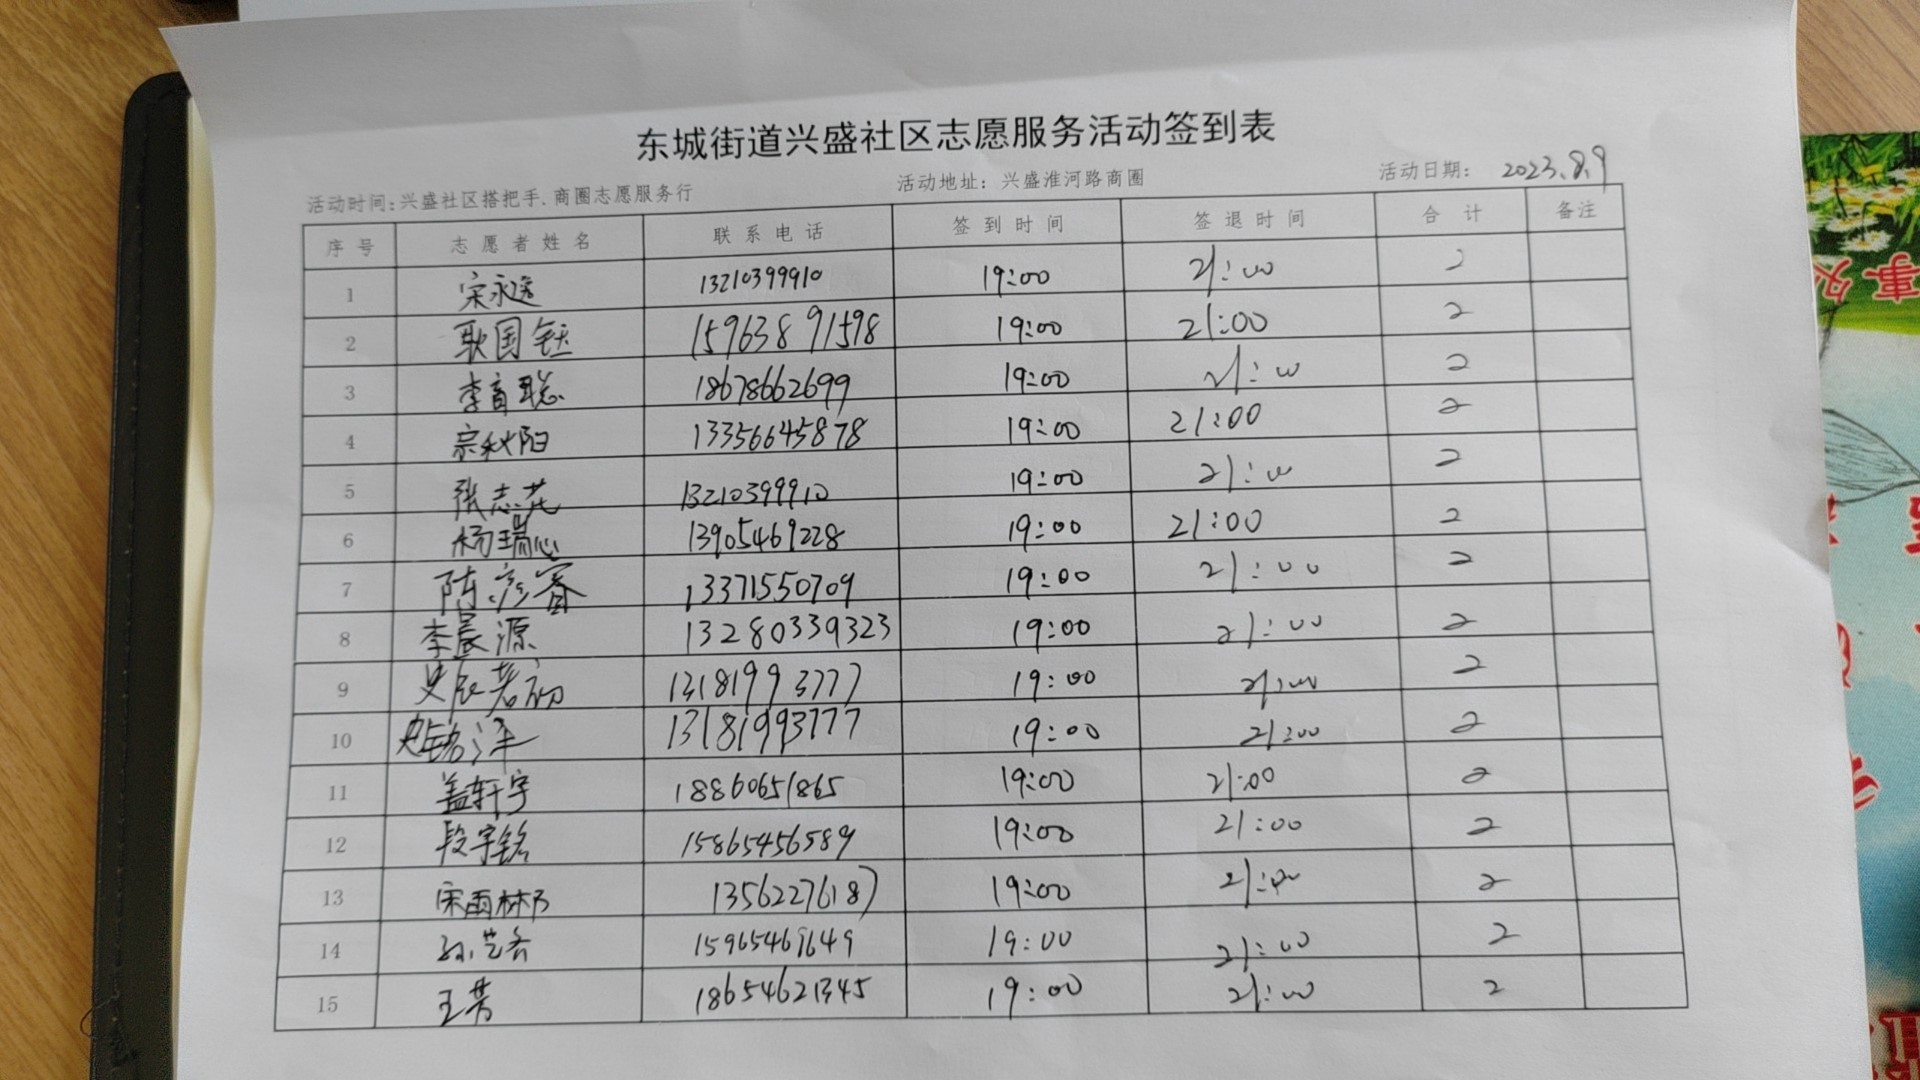 东城街道兴盛社区志愿服务活动签到表
活动时间:兴盛社区搭把手、商圈志愿服务行 活动地址: 兴盛淮河路商圈 活动日期: 2023.8.9
序号 志愿者姓名 联系电话 签到时间 签退时间 合计 备注
1 宋永逸 13210399910 19:00 21:00 2
2 耿国钰 15963891598 19:00 21:00 2
3 李育聪 18678662699 19:00 21:00 2
4 宗秋阳 13356645878 19:00 21:00 2
5 张志花 13210399910 19:00 21:00 2
6 杨瑞心 13905469228 19:00 21:00 2
7 陈彦睿 13371550709 19:00 21:00 2
8 李晨源 13280339323 19:00 21:00 2
9 13181993777 19:00 21:00 2
10 13181993777 19:00 21:00 2
11 盖轩宇 18860651865 19:00 21:00 2
12 段宇铭 15865456589 19:00 21:00 2
13 宋雨林 13562276187 19:00 21:00 2
14 孙艺 15965469649 19:00 21:00 2
15 王芳 18654621345 19:00 21:00 2